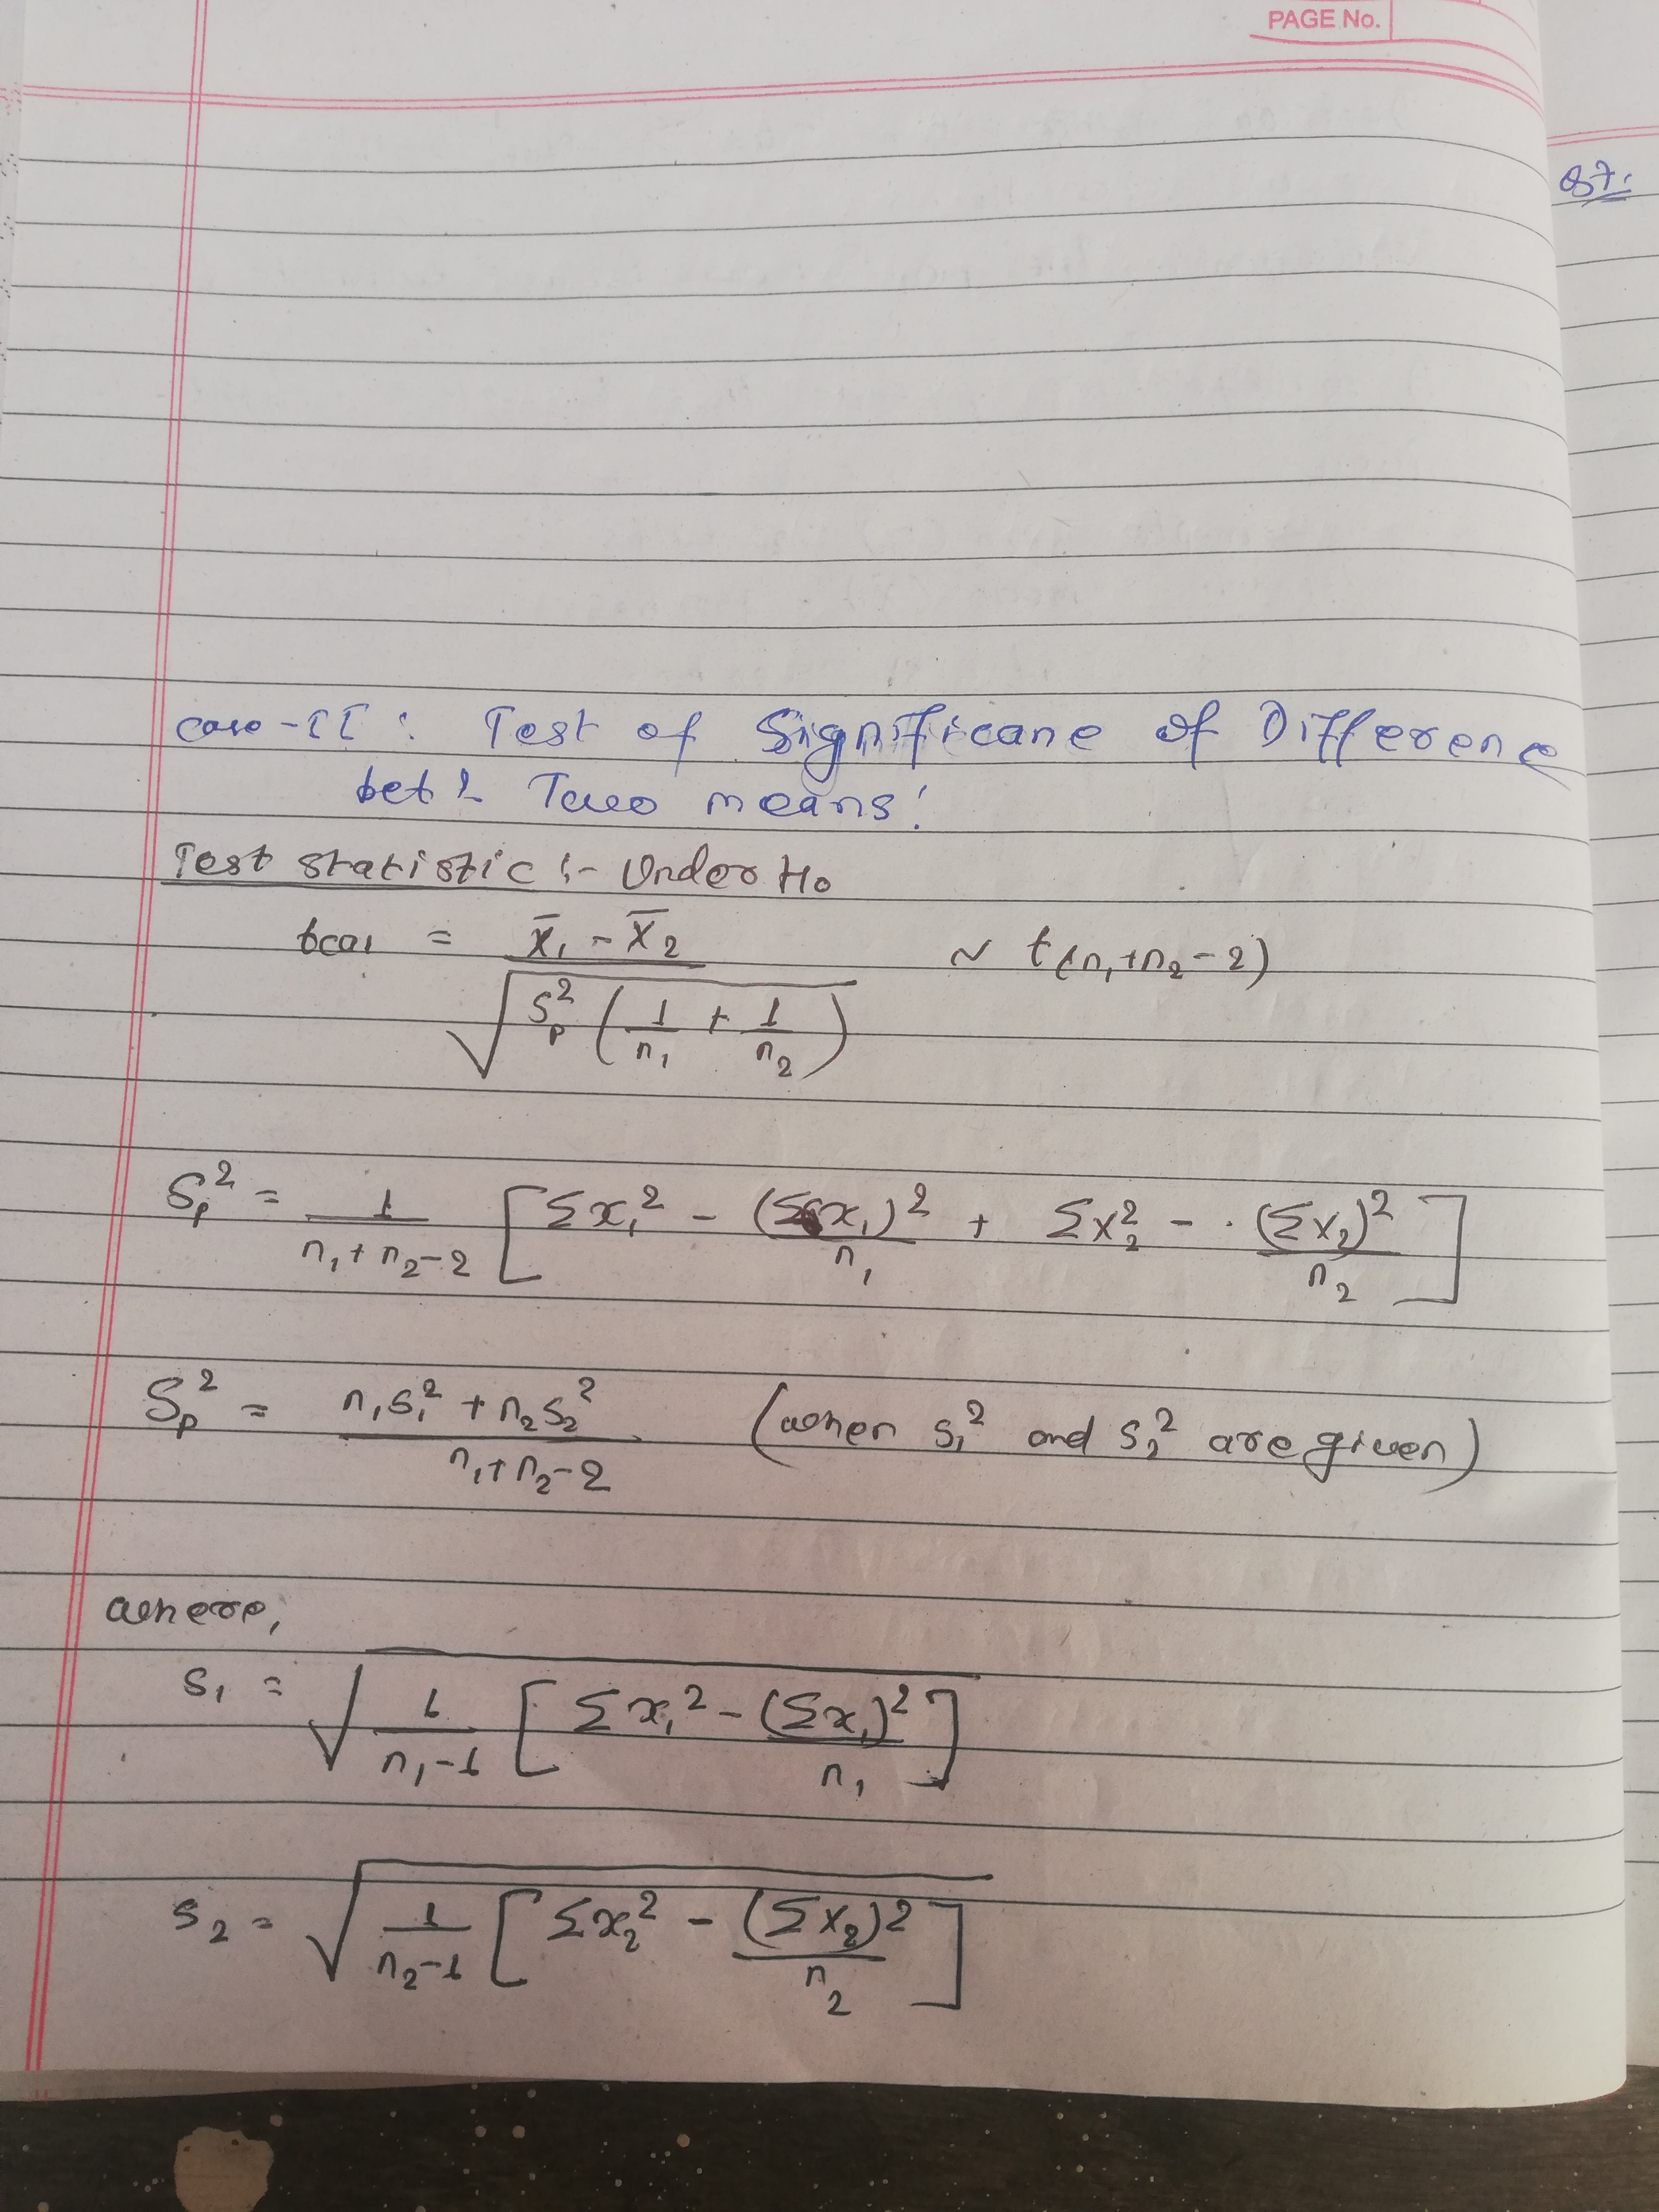 PAGE No.
Q7:
case-II : Test of Significane of Difference
betn Two means:
Test statistic :- Under H₀
tcal = (x̄₁ - x̄₂) / √(Sp² (1/n₁ + 1/n₂)) ~ t(n₁+n₂-2)
Sp² = 1/(n₁+n₂-2) [Σx₁² - (Σx₁)²/n₁ + Σx₂² - (Σx₂)²/n₂]
Sp² = (n₁s₁² + n₂s₂²)/(n₁+n₂-2) (when s₁² and s₂² are given)
where,
s₁ = √(1/(n₁-1) [Σx₁² - (Σx₁)²/n₁])
s₂ = √(1/(n₂-1) [Σx₂² - (Σx₂)²/n₂])